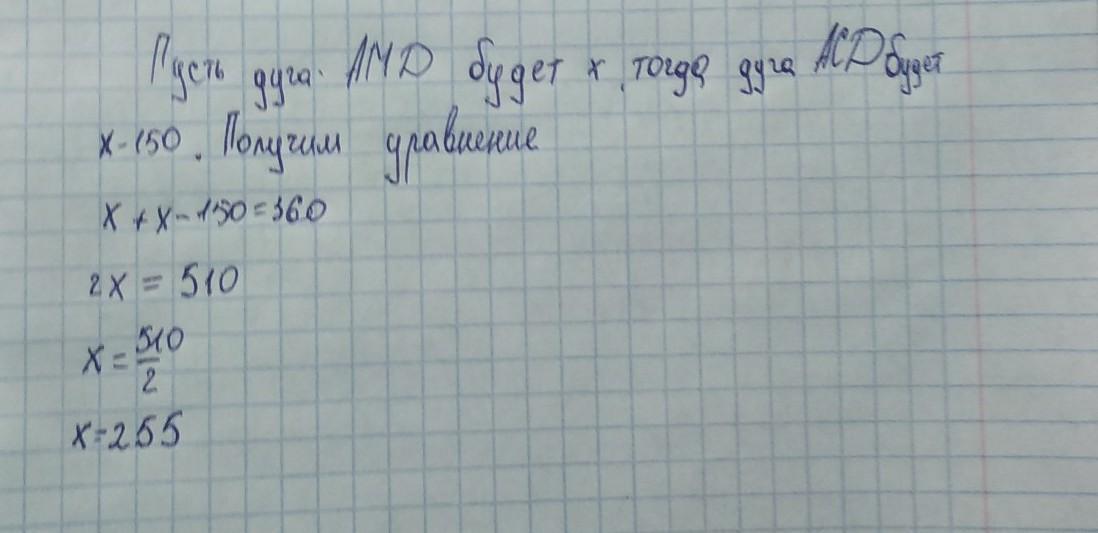 Пусть дуга АМD будет x, тогда дуга АСD будет
x-150. Получим уравнение
x+x-150=360
2x = 510
x = 510/2
x=255